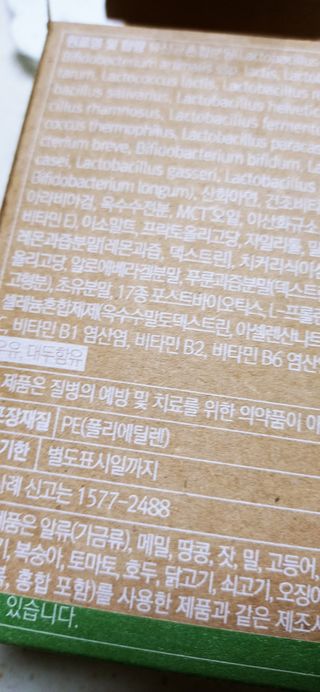 원료명 및 함량
Bifidobacterium lactis, Lactobacillus
Lactococcus lactis, Lactobacillus
Lactobacillus helvet
cillus rhamnosus, Lactobacillus fermen
coccus thermophilus, Lactobacillus paraca
cterium breve, Bifidobacterium bifidum, La
casei, Lactobacillus gasseri, Lactobacillus
Bifidobacterium longum), 산화아연, 건조비
아라비아검, 옥수수전분, MCT오일, 이산화규소
비타민E), 이소말트, 프락토올리고당, 자일리톨, 밀
레몬과즙분말(레몬과즙, 덱스트린), 치커리식이섬
올리고당, 알로에베라겔분말, 푸룬과즙분말(덱스트
고형분), 초유분말, 17종 포스트바이오틱스, L-프롤
셀레늄혼합제제(옥수수말토덱스트린, 아셀렌산나트
C, 비타민 B1 염산염, 비타민 B2, 비타민 B6 염산
우유, 대두함유
제품은 질병의 예방 및 치료를 위한 의약품이 아
포장재질 PE(폴리에틸렌)
기한 별도표시일까지
사례 신고는 1577-2488
제품은 알류(가금류), 메밀, 땅콩, 잣, 밀, 고등어,
기, 복숭아, 토마토, 호두, 닭고기, 쇠고기, 오징어
홍합 포함)를 사용한 제품과 같은 제조시
있습니다.